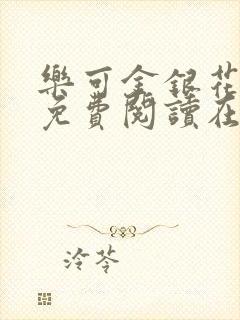 樂可金銀花
免費閱讀在
泠苓